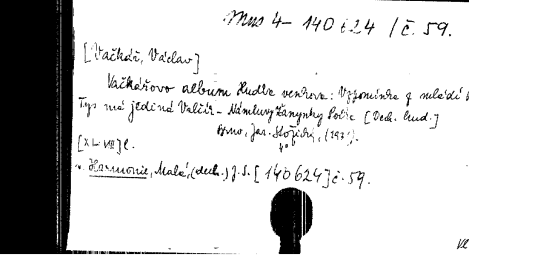 Mus 4-140624/č. 59.
[Vačkář, Václav]
Vačkářovo album Hudba venkova: Vzpomínka z mládí
Tys má jediná Valčík - Námluvy Polka [Dech. hud.]
Brno, Jar. Stožický, (193 .)
4°
[XL VII] l.
v. Harmonie, Malá, (dech.) J.S. [140624] č. 59.